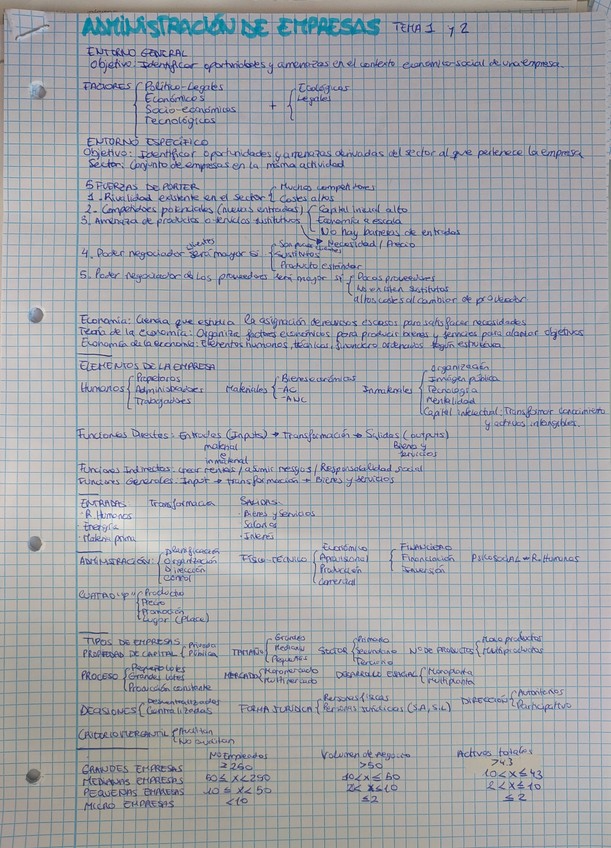 ADMINISTRACIÓN DE EMPRESAS TEMA 1 y 2
ENTORNO GENERAL
Objetivo: Identificar oportunidades y amenazas en el contexto económico-social de una empresa.
FACTORES { Político-Legales + { Ecológicas
Económicos Legales
Socio-económicos
Tecnológicos
ENTORNO ESPECÍFICO
Objetivo: Identificar oportunidades y amenazas derivadas del sector al que pertenece la empresa
Sector: Conjunto de empresas en la misma actividad
5 FUERZAS DE PORTER
1. Rivalidad existente en el sector { Muchos competidores
Costes altos
2. Competidores potenciales (nuevas entradas) { Capital inicial alto
Economía a escala
No hay barreras de entradas
3. Amenaza de productos o servicios sustitutivos → Necesidad / Precio
4. Poder negociador será mayor si {
Sustitutos
Producto estándar
5. Poder negociador de los proveedores será mayor si { Pocos proveedores
No existen sustitutos
altos costes al cambiar de proveedor
Economía: Ciencia que estudia la asignación de recursos escasos para satisfacer necesidades
Teoría de la economía: Organiza factores económicos para producir bienes y servicios para alcanzar objetivos
Economía de la economía: Elementos humanos, técnicos, financiero ordenados según estructura
ELEMENTOS DE LA EMPRESA
Humanos { Propietarios Materiales { Bienes económicos Inmateriales { Organización
Administradores -AC Imagen pública
Trabajadores -ANC Tecnología
Mentalidad
Capital intelectual: Transformar conocimiento
y activos intangibles.
Funciones Directas: Entradas (Inputs) → Transformación → Salidas (outputs)
material Bienes y
o servicios
inmaterial
Funciones Indirectas: crear rentas / asumir riesgos / Responsabilidad social
Funciones Generales: Input → transformación → Bienes y servicios
ENTRADAS Transformación SALIDAS:
· R. Humanos · Bienes y Servicios
· Energía · Salarios
· Materia prima · Interés
ADMINISTRACIÓN: { Planificación FÍSICO-TÉCNICO { Económico FINANCIERO { Financiación PSICOSOCIAL → R. Humanos
Organización Aprovisional Inversión
Dirección Producción
Control Comercial
CUATRO "P" { Producto
Precio
Promoción
Lugar (Place)
TIPOS DE EMPRESAS
PROPIEDAD DE CAPITAL { Privada TAMAÑO { Grandes SECTOR { Primario Nº DE PRODUCTOS { Monoproductos
Pública Medianas Secundario Multiproductos
Pequeñas Terciario
PROCESO { Pequeños lotes MERCADO { Monomercado DESARROLLO ESPACIAL { Monoplanta
Grandes lotes Multimercado Multiplanta
Producción constante
DECISIONES { Descentralizadas FORMA JURÍDICA { Personas físicas DIRECCIÓN { Autoritarios
Centralizadas Personas jurídicas (SA, SL) Participativo
CRITERIO MERCANTIL { Auditan
No auditan
Nº Empleados Volumen de negocio Activos totales
GRANDES EMPRESAS ≥250 >50 >43
MEDIANAS EMPRESAS 50 ≤ x < 250 10 < x ≤ 50 10 < x ≤ 43
PEQUEÑAS EMPRESAS 10 ≤ x < 50 2 < x ≤ 10 2 < x ≤ 10
MICRO EMPRESAS <10 ≤2 ≤ 2